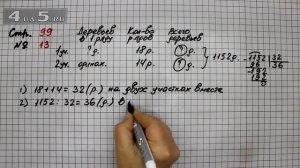 4 да 5.NET
Стр. 99
№ 13
Деревьев в 1 ряду
Кол-во рядов
Всего деревьев
1 уч. ? д. 18 р. ?
2 уч. одинак. 14 р. ?
1152 р.
1152 32
96 36
192
192
0
1) 18+14=32 (р.) на двух участках вместе
2) 1152:32=36 (д.) в